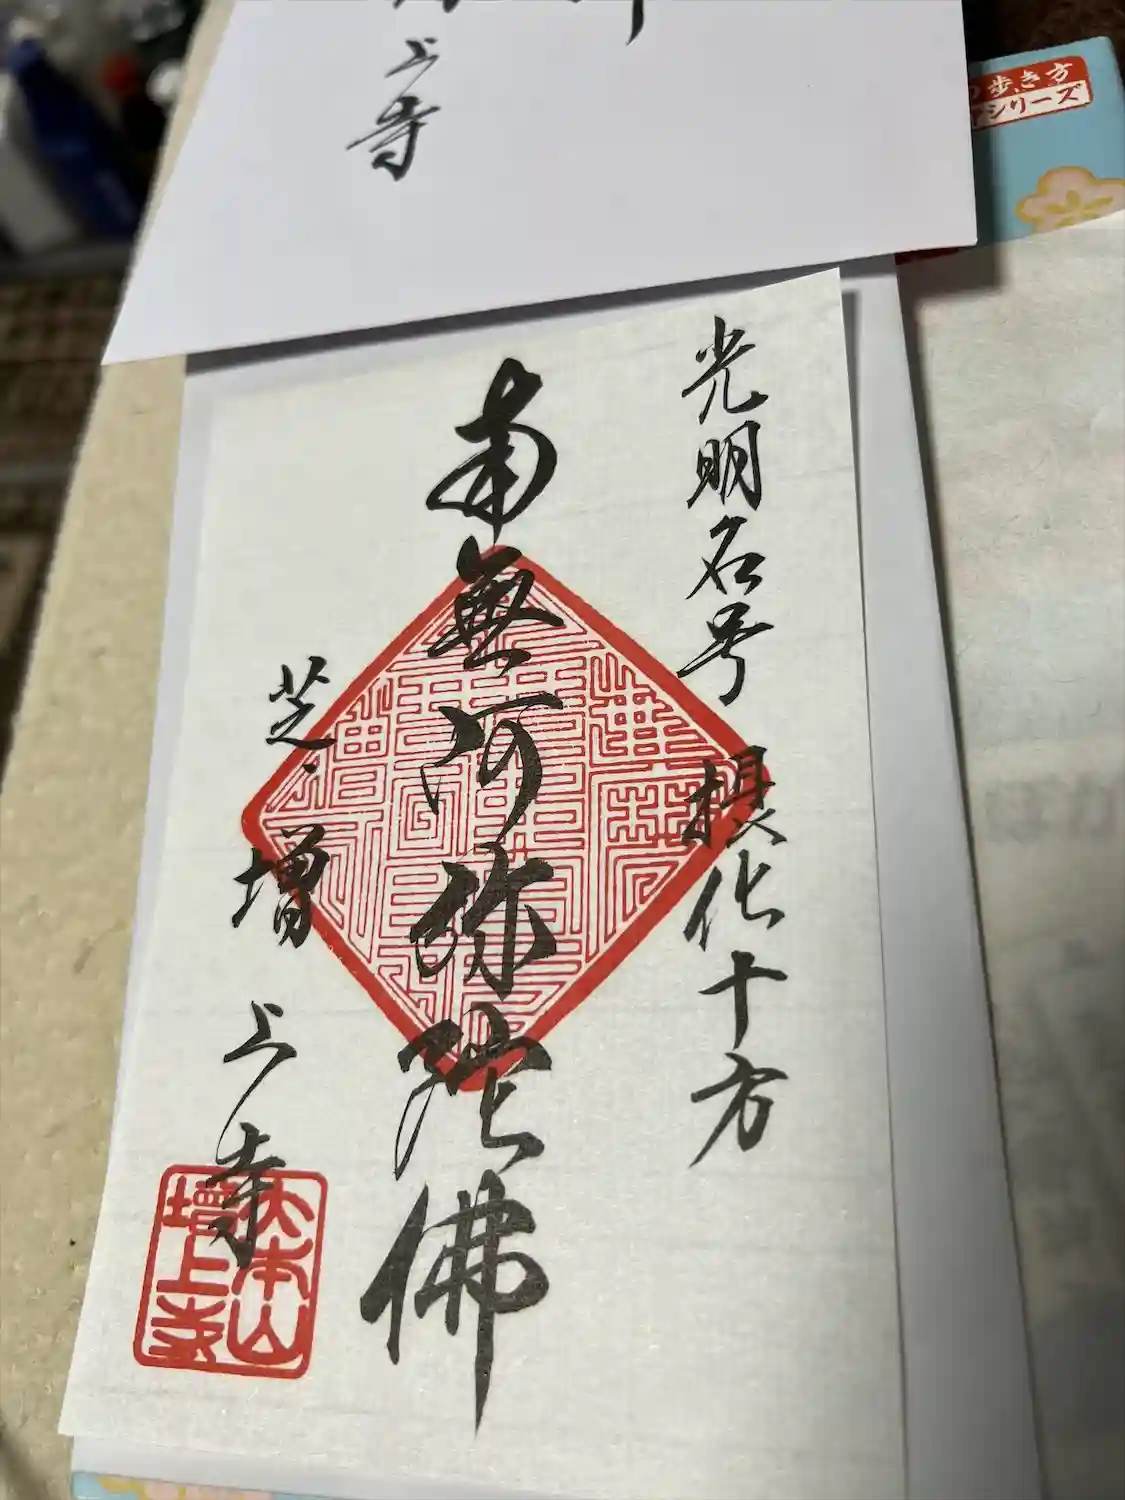 上寺
の歩き方
シリーズ
光明名号 摂化十方
南無阿弥陀佛
芝・増上寺
大本山
増上寺